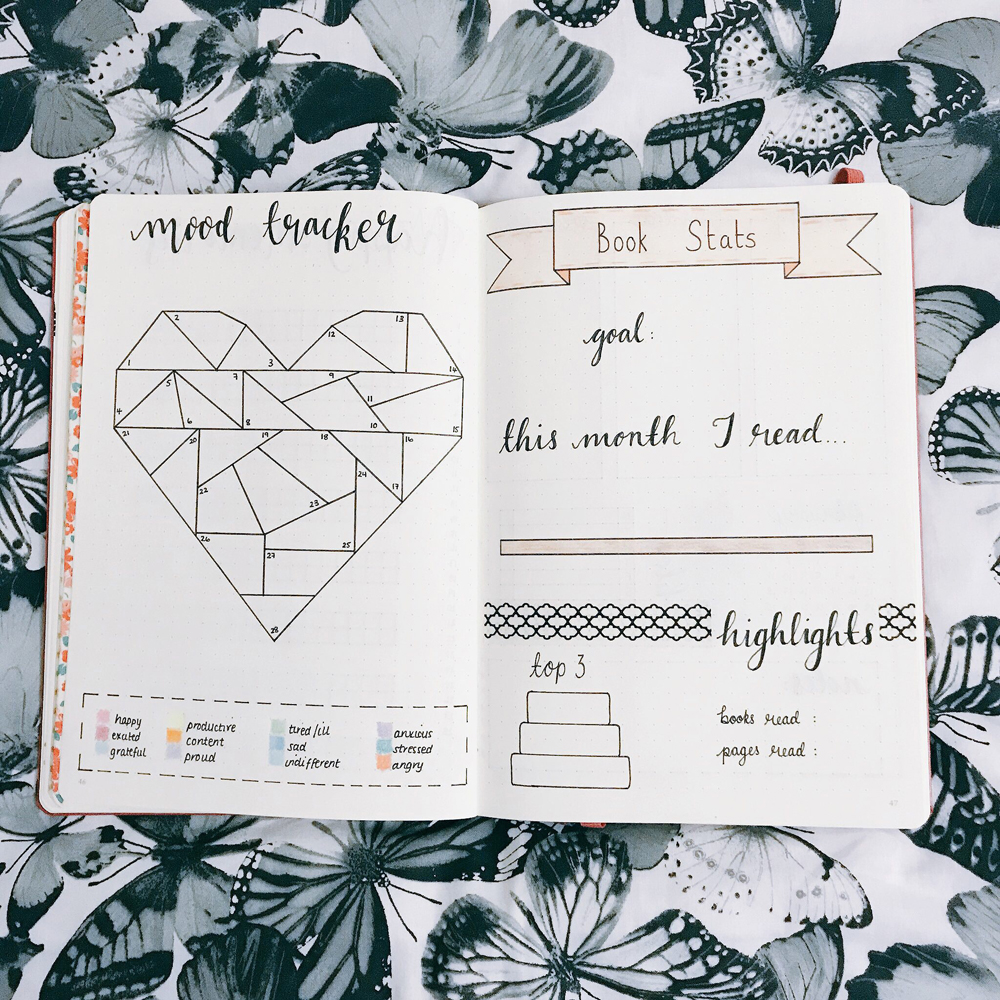 mood tracker
2
13
12
1
3
14
5
7
9
11
4
6
8
10
21
20
19
18
16
15
22
24
17
23
26
27
25
28
happy
exuted
grateful
productive
content
proud
tired/ill
sad
indifferent
anxious
stressed
angry
Book Stats
goal:
this month I read...
highlights
top 3
books read :
pages read :